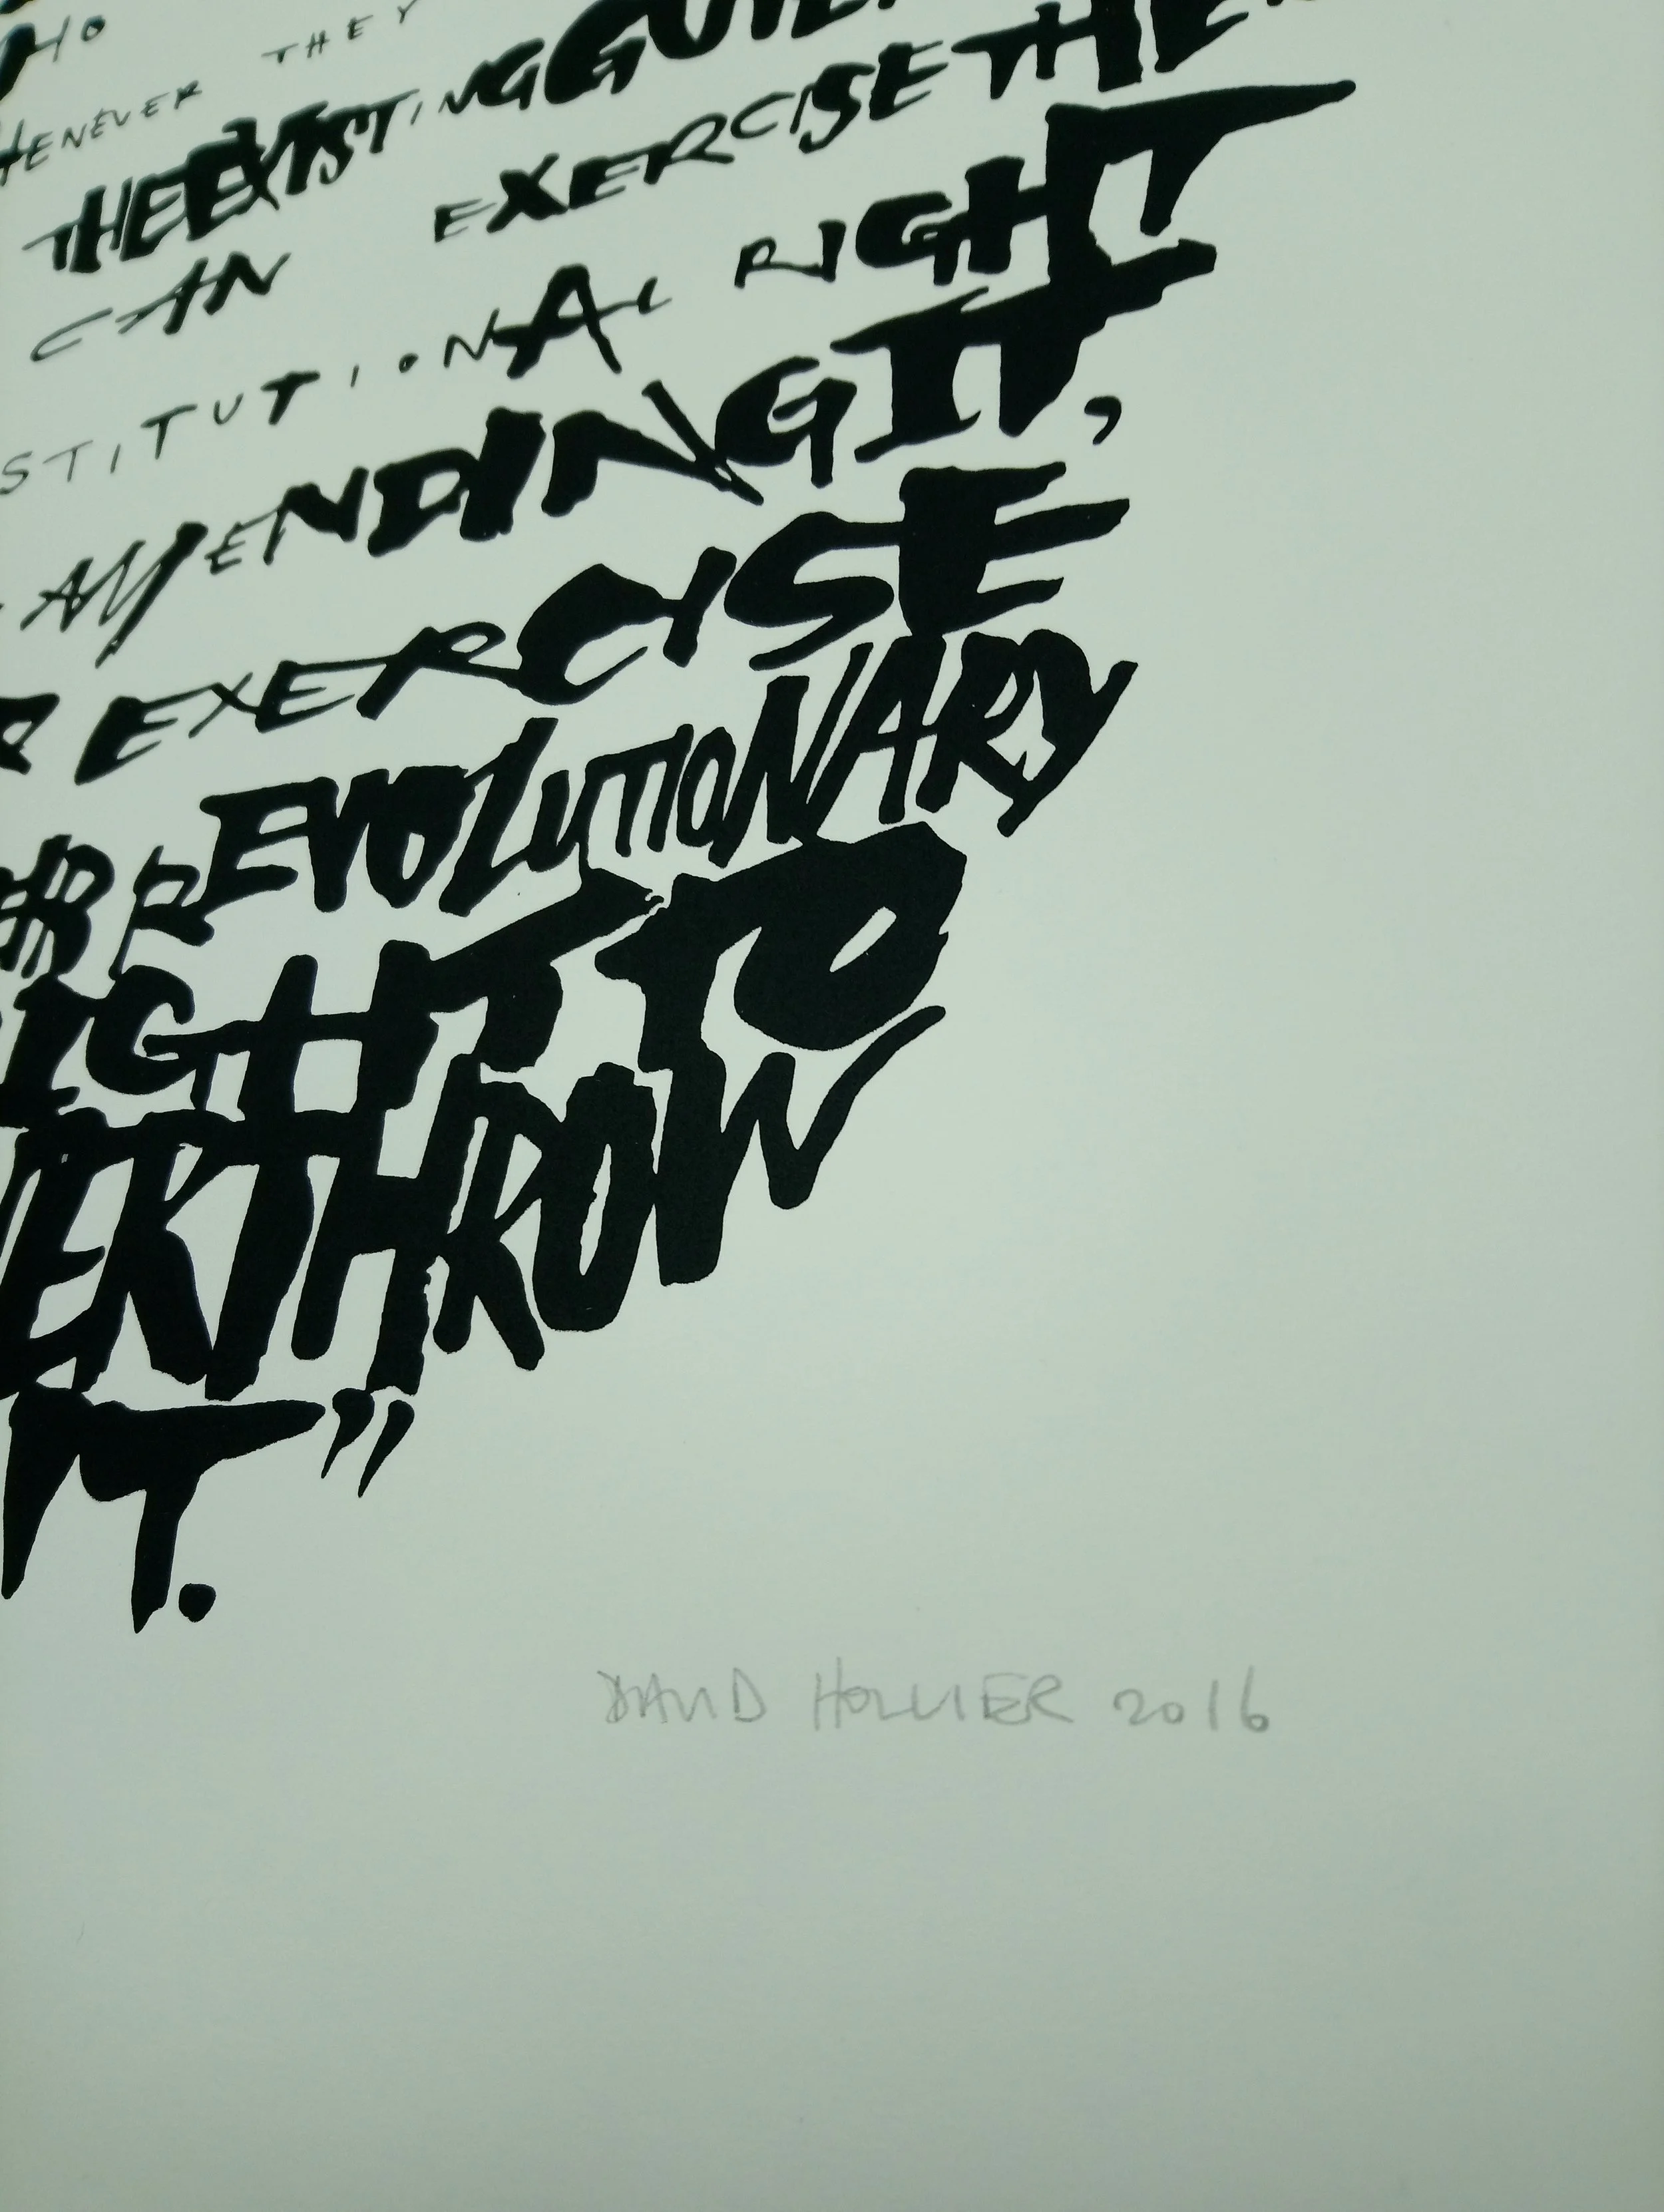 HO
HENEVER THEY
THE EXISTING
CAN EXERCISE THE
STITUTIONAL RIGHT
AMENDING IT,
R EXERCISE
REVOLUTIONARY
IGHT TO
VERTHROW
IT."
DAVID HOLLIER 2016